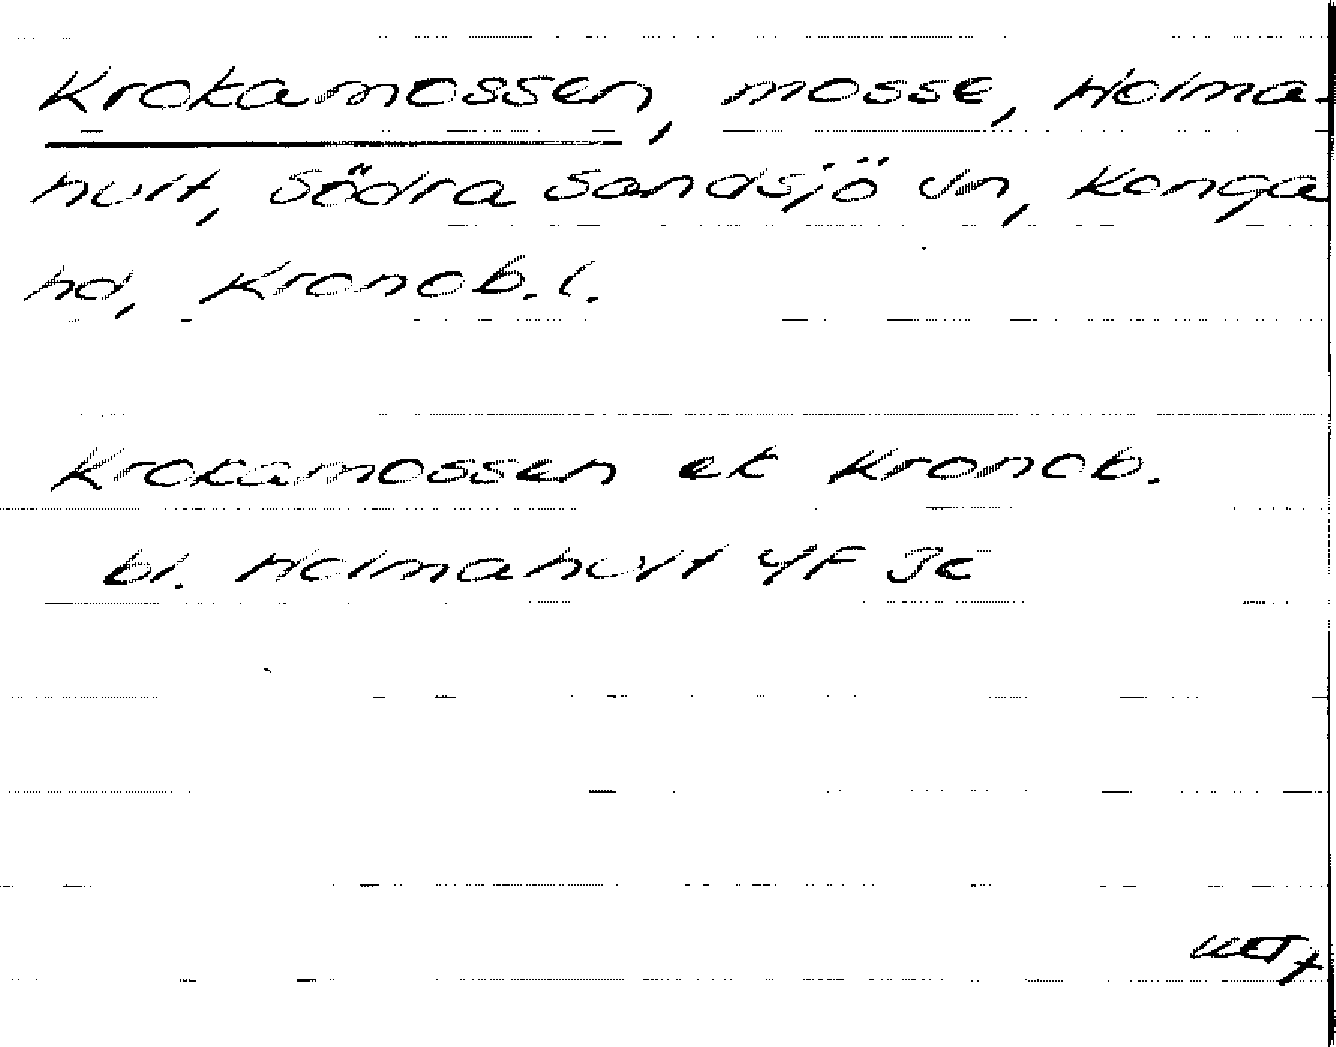 Krokamossen, mosse, Holma-
hult, Södra Sandsjö sn, Konga
hd, Kronob. l.
Krokamossen ek Kronob.
bl. Holmahult 4F 3c